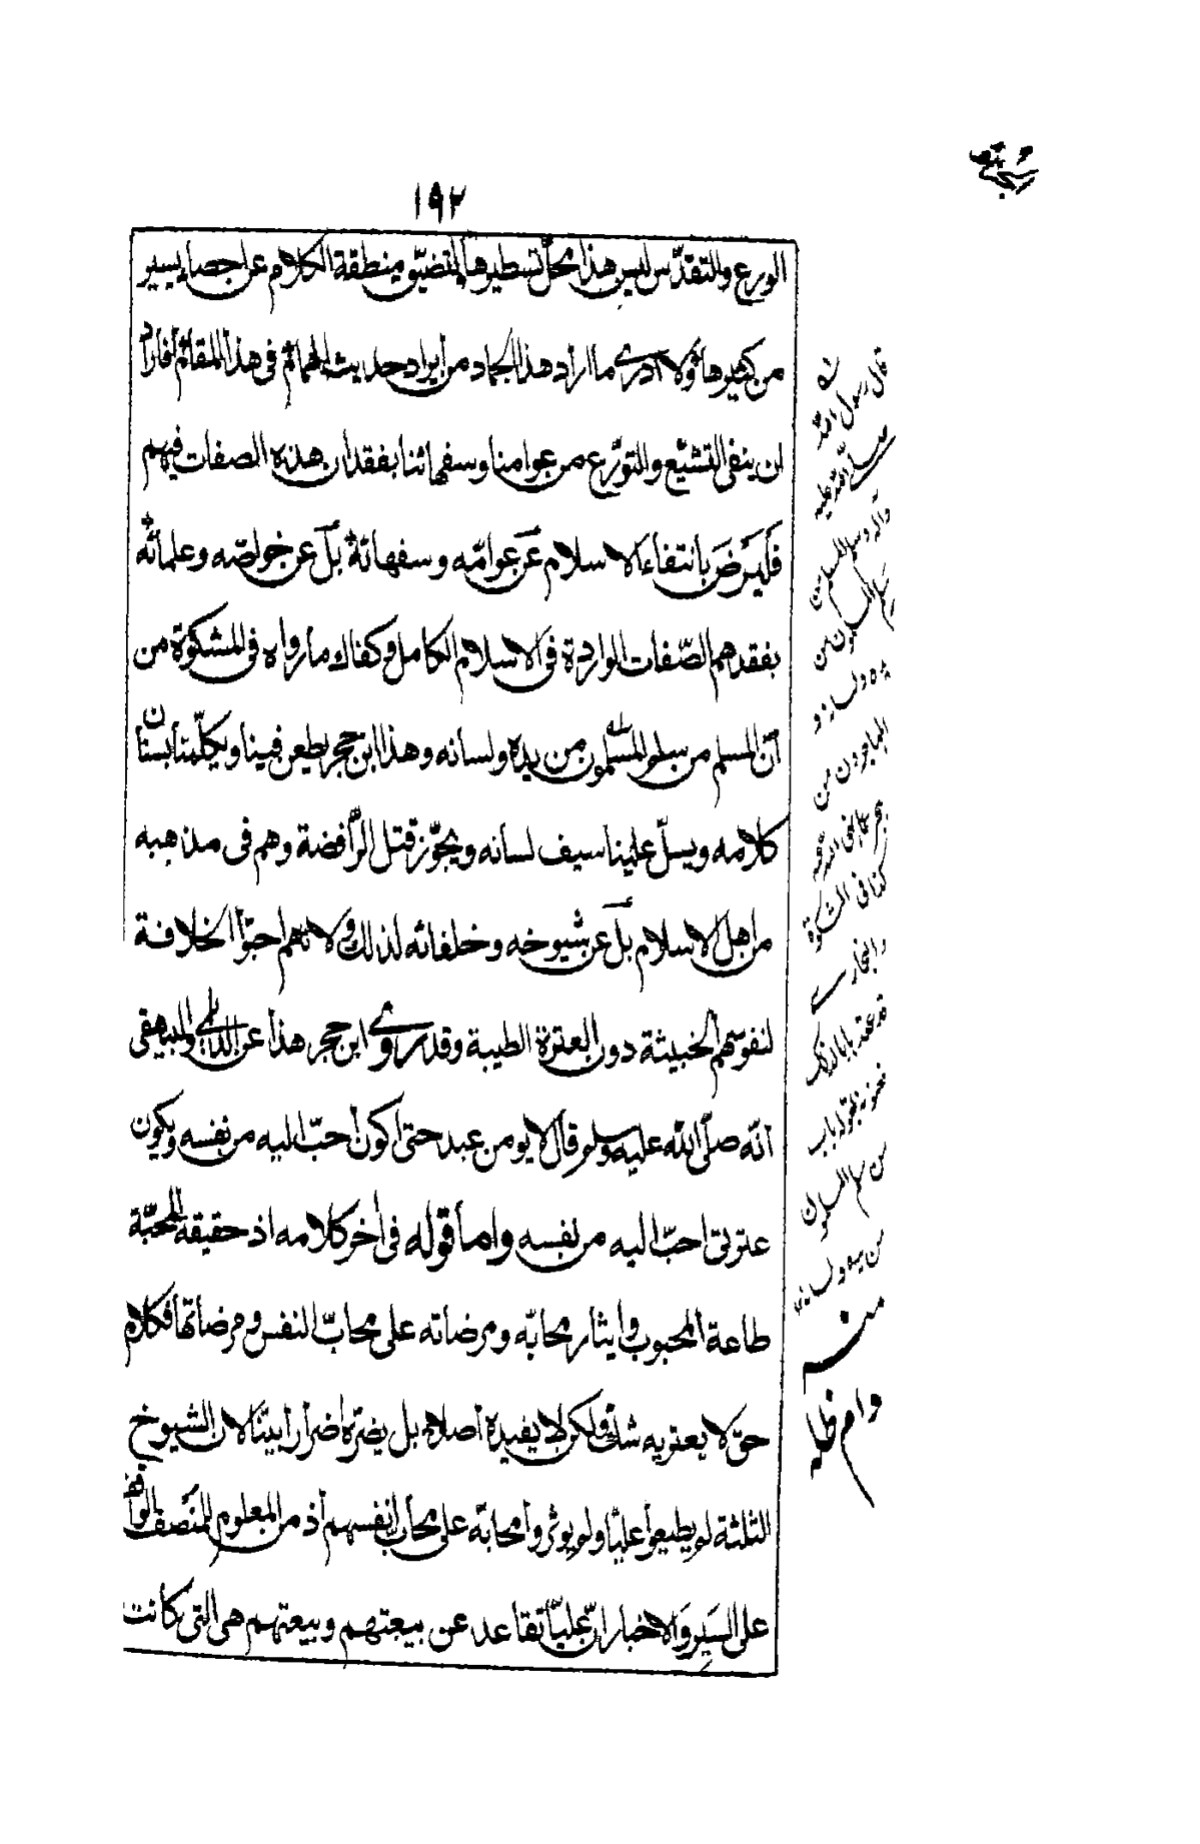 ١٩٢
الورع والتقدّس ليس هذا محلّ تسطيرها لتضيّق منطقة الكلام عن احصاء يسير
من كثيرها ولا ادرى ما اراد هذا الجماد من ايراد حديث الهمام فى هذا المقام أفاراد
ان ينفى التشيّع والتورّع عن عوامنا وسفهائنا بفقدان هذه الصفات فيهم
فليرض بانتفاء الاسلام عن عوامّه وسفهائه بل عن خواصّه وعلمائه
بفقدهم الصّفات الواردة فى الاسلام الكامل وكفاك ما رواه فى المشكوة من
أنّ المسلم من سلم المسلمون من يده ولسانه وهذا ابن حجر يطعن فينا ويكلّمنا بسنان
كلامه ويسلّ علينا سيف لسانه ويجوّز قتل الرّافضة وهم فى مذهبه
من اهل الاسلام بل عن شيوخه وخلفائه لذلك ولانهم احبّوا الخلافة
لنفوسهم الخبيثة دون العترة الطيبة وقد روى ابن حجر هذا عن الديلمى والبيهقى
انّه صلّى الله عليه وسلم قال لا يومن عبد حتى اكون أحبّ اليه من نفسه ويكون
عترتى احبّ اليه من نفسه واما قوله فى أخر كلامه اذ حقيقة المحبّة
طاعة المحبوب وايثار محابّه ومرضاته على محابّ النفس ومرضاتها فكلام
حق لا يعتريه شك ولكن لا يفيده أصلا بل يضرّه اضرارا بيّنا لان الشيوخ
الثلثة لم يطيعوا عليّا ولم يوثروا محابّه على محابّ انفسهم أذ من المعلوم للمنصف الواقف
على السير والاخبار انّ عليّا تقاعد عن بيعتهم وبيعتهم هى التى كانت
قال رسول الله
صلى الله عليه
وآله وسلم المسلم من
سلم المسلمون من
يده ولسانه و
المهاجرون من
هجر ما نهى الله عنه
كذا فى المشكوة
والبخارى
قد عقد بابا لذلك
بقوله باب
من سلم المسلمون
من يده ولسانه
منه
دام ظله